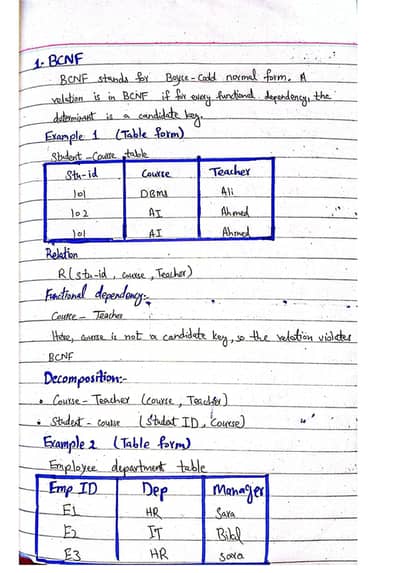 1. BCNF
BCNF stands for Boyce-Codd normal form. A
relation is in BCNF if for every functional dependency, the
determinant is a candidate key.
Example 1 (Table form)
Student-Course table
Stu-id Course Teacher
101 DBMS Ali
102 AI Ahmed
101 AI Ahmed
Relation
R(stu-id, course, Teacher)
Functional dependency:-
Course - Teacher
Here, course is not a candidate key, so the relation violates
BCNF
Decomposition:-
• Course-Teacher (course, Teacher)
• Student-course (Student ID, course)
Example 2 (Table form)
Employee department table
Emp ID Dep Manager
E1 HR Sara
E2 IT Bilal
E3 HR Sara